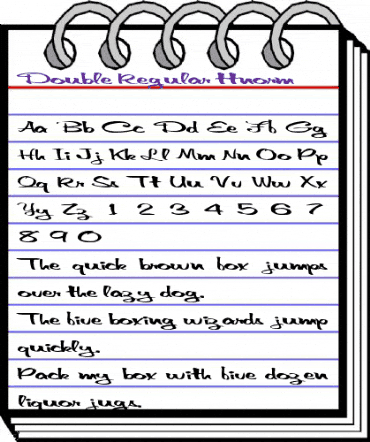 Double Regular Hnorm
Aa Bb Cc Dd Ee Ff Gg
Hh Ii Jj Kk Ll Mm Nn Oo Pp
Qq Rr Ss Tt Uu Vv Ww Xx
Yy Zz 1 2 3 4 5 6 7
8 9 0
The quick brown fox jumps
over the lazy dog.
The five boxing wizards jump
quickly.
Pack my box with five dozen
liquor jugs.